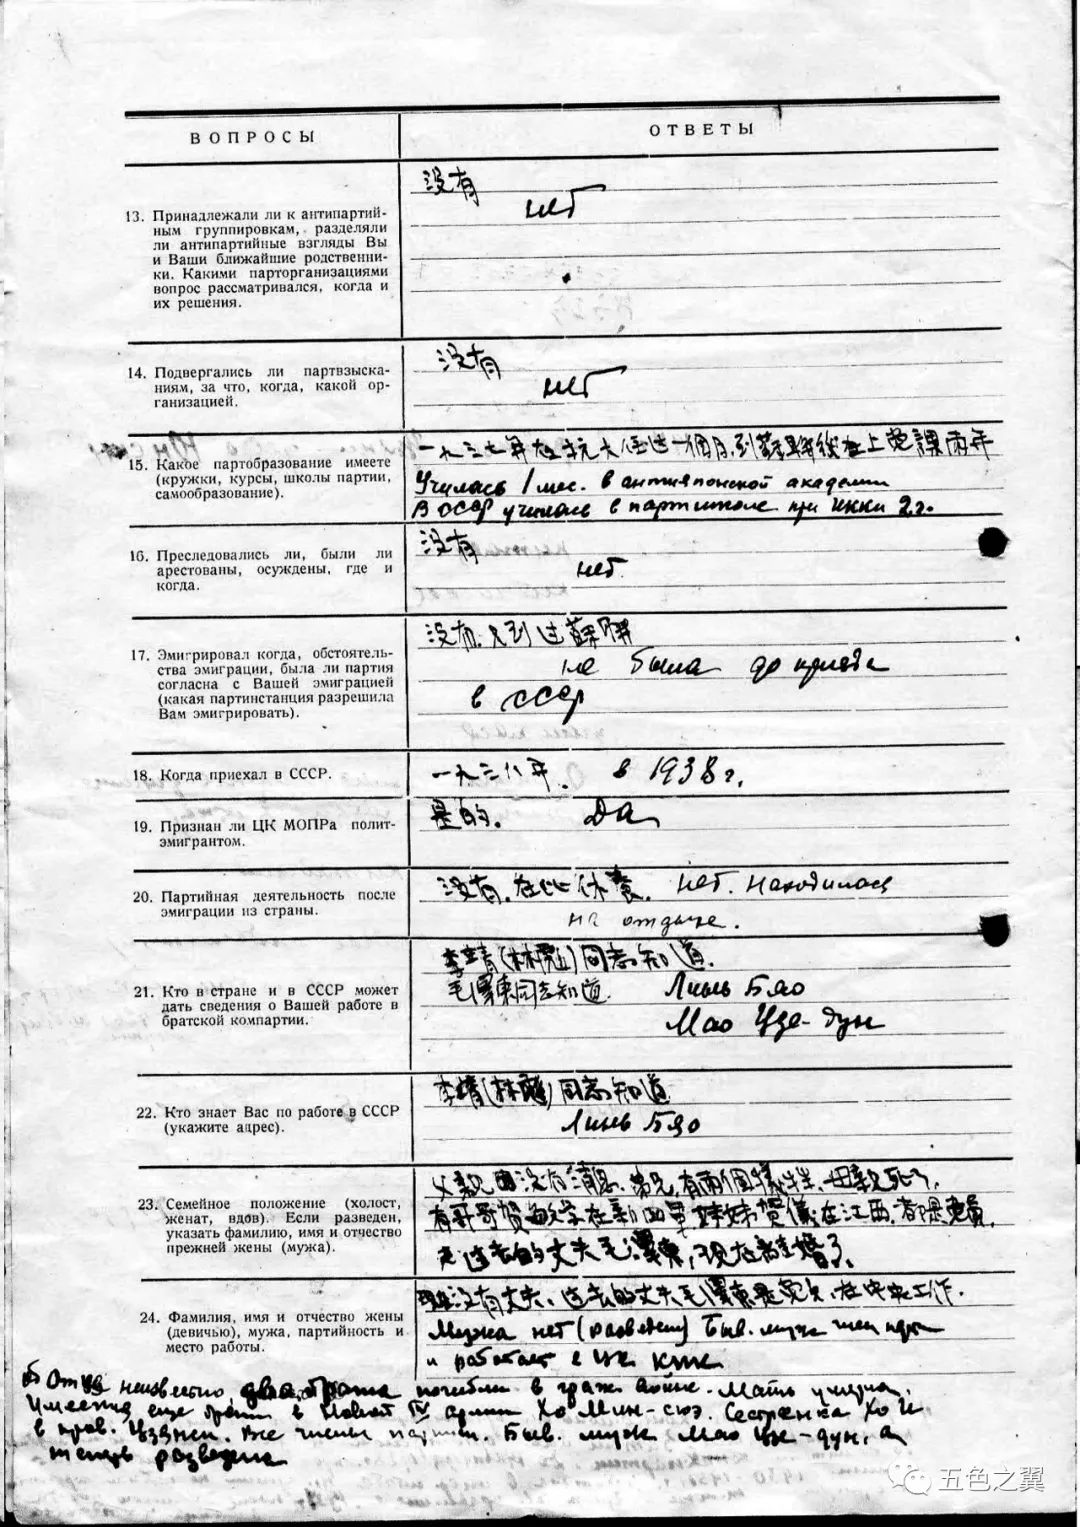 ВОПРОСЫ
ОТВЕТЫ
13. Принадлежали ли к антипартий-
ным группировкам, разделяли
ли антипартийные взгляды Вы
и Ваши ближайшие родственни-
ки. Какими парторганизациями
вопрос рассматривался, когда и
их решения.
没有
нет
14. Подвергались ли партвзыска-
ниям, за что, когда, какой ор-
ганизацией.
没有
нет
15. Какое партобразование имеете
(кружки, курсы, школы партии,
самообразование).
一九三七年在抗大住过一個月,到蘇聯後在上党課兩年
Училась 1 мес. в антияпонской академии
В СССР училась в партшколе при ИККИ 2 г.
16. Преследовались ли, были ли
арестованы, осуждены, где и
когда.
没有
нет.
17. Эмигрировал когда, обстоятель-
ства эмиграции, была ли партия
согласна с Вашей эмиграцией
(какая партинстанция разрешила
Вам эмигрировать).
没有.只到过蘇聯
не была до приезда
в СССР
18. Когда приехал в СССР.
一九三八年. в 1938 г.
19. Признан ли ЦК МОПРа полит-
эмигрантом.
是的. Да
20. Партийная деятельность после
эмиграции из страны.
没有.在此休養. Нет. Находилась
на отдыхе.
21. Кто в стране и в СССР может
дать сведения о Вашей работе в
братской компартии.
李 (林彪)同志知道.
毛澤東同志知道. Линь Бяо
Мао Цзе-дун
22. Кто знает Вас по работе в СССР
(укажите адрес).
李 (林彪)同志知道
Линь Бяо
23. Семейное положение (холост,
женат, вдов). Если разведен,
указать фамилию, имя и отчество
прежней жены (мужа).
父親 没有消息.弟兄,有兩個犧牲.母親死了,
有哥哥賀敏学在新四軍妹妹賀儀在江西,都是党員,
过去的丈夫毛澤東,現在離婚了.
24. Фамилия, имя и отчество жены
(девичью), мужа, партийность и
место работы.
現在没有丈夫.过去的丈夫毛澤東是党員,在中央工作.
Мужа нет (разведены) Быв. муж член партии
и работает в ЦК ККП
Отца неизвестно, два брата погибли в граж. войне. Мать умерла.
Имеется еще брат в Новой IV армии Хо Мин-сюэ. Сестренка Хо И
в пров. Цзянси. Все члены партии. Быв. муж Мао Цзе-дун, а
теперь разведена
五色之翼